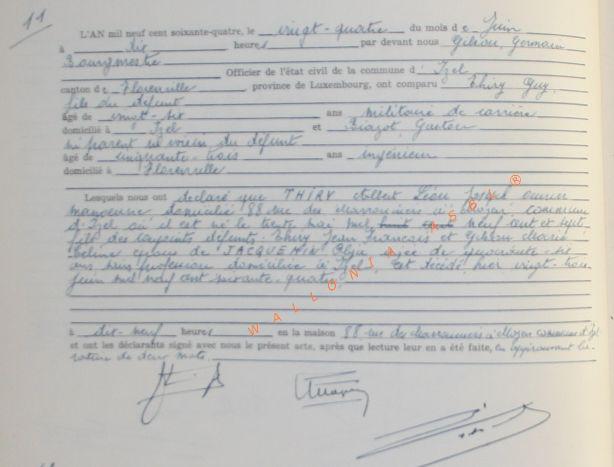 11
L'AN mil neuf cent soixante-quatre, le vingt-quatre du mois de Juin
à dix heures par devant nous Gilson, Germain
Bourgmestre
Officier de l'état civil de la commune d'Izel
canton de Florenville, province de Luxembourg, ont comparu Thiry Guy,
fils du défunt
âgé de vingt-six ans militaire de carrière
domicilié à Izel et Gaston
ni parent ni voisin du défunt
âgé de cinquante-trois ans ingénieur
domicilié à Florenville
Lesquels nous ont déclaré que THIRY Albert Léon Joseph ouvrier
manoeuvre domicilié 88 rue des charronniers à Moyen commune
d'Izel où il est né le trente mai mil neuf cent et sept
fils des conjoints défunts Thiry Jean François et Marie
Céline époux de JACQUEMIN âgée de quarante-six
ans sans profession domiciliée à Izel est décédé hier vingt-trois
juin mil neuf cent soixante-quatre
à dix-neuf heures en la maison 88, rue des charronniers à Moyen commune d'Izel
et ont les déclarants signé avec nous le présent acte, après que lecture leur en a été faite, en approuvant la
rature de deux mots.
WALLONIA ASBL ®